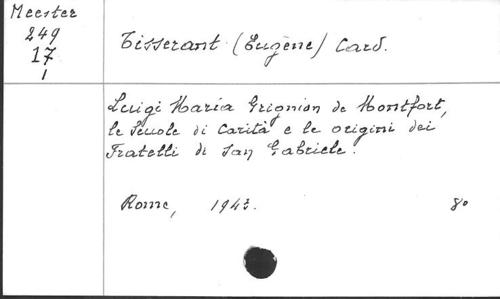 Meester
249
17
1
Tisserant (Eugène) Card.
Luigi Maria Grignion de Montfort,
le Scuole di Carità e le origini dei
Fratelli di San Gabriele.
Rome, 1943. 8º